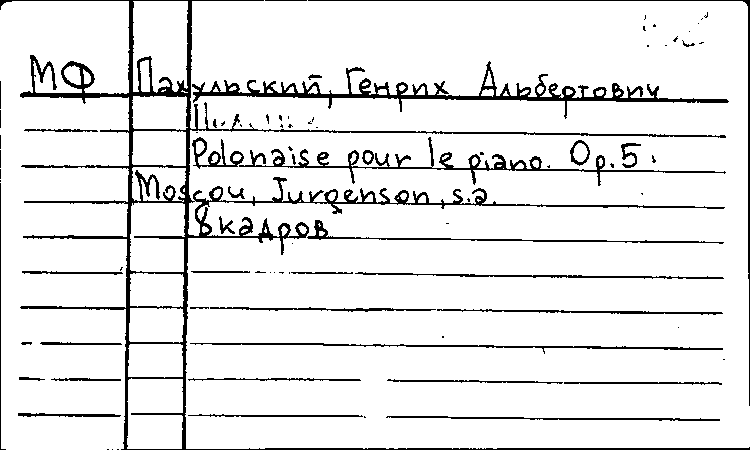 МФ Пахульский, Генрих Альбертович
Polonaise pour le piano. Op. 5.
Moscou, Jurgenson, s.a.
8 кадров